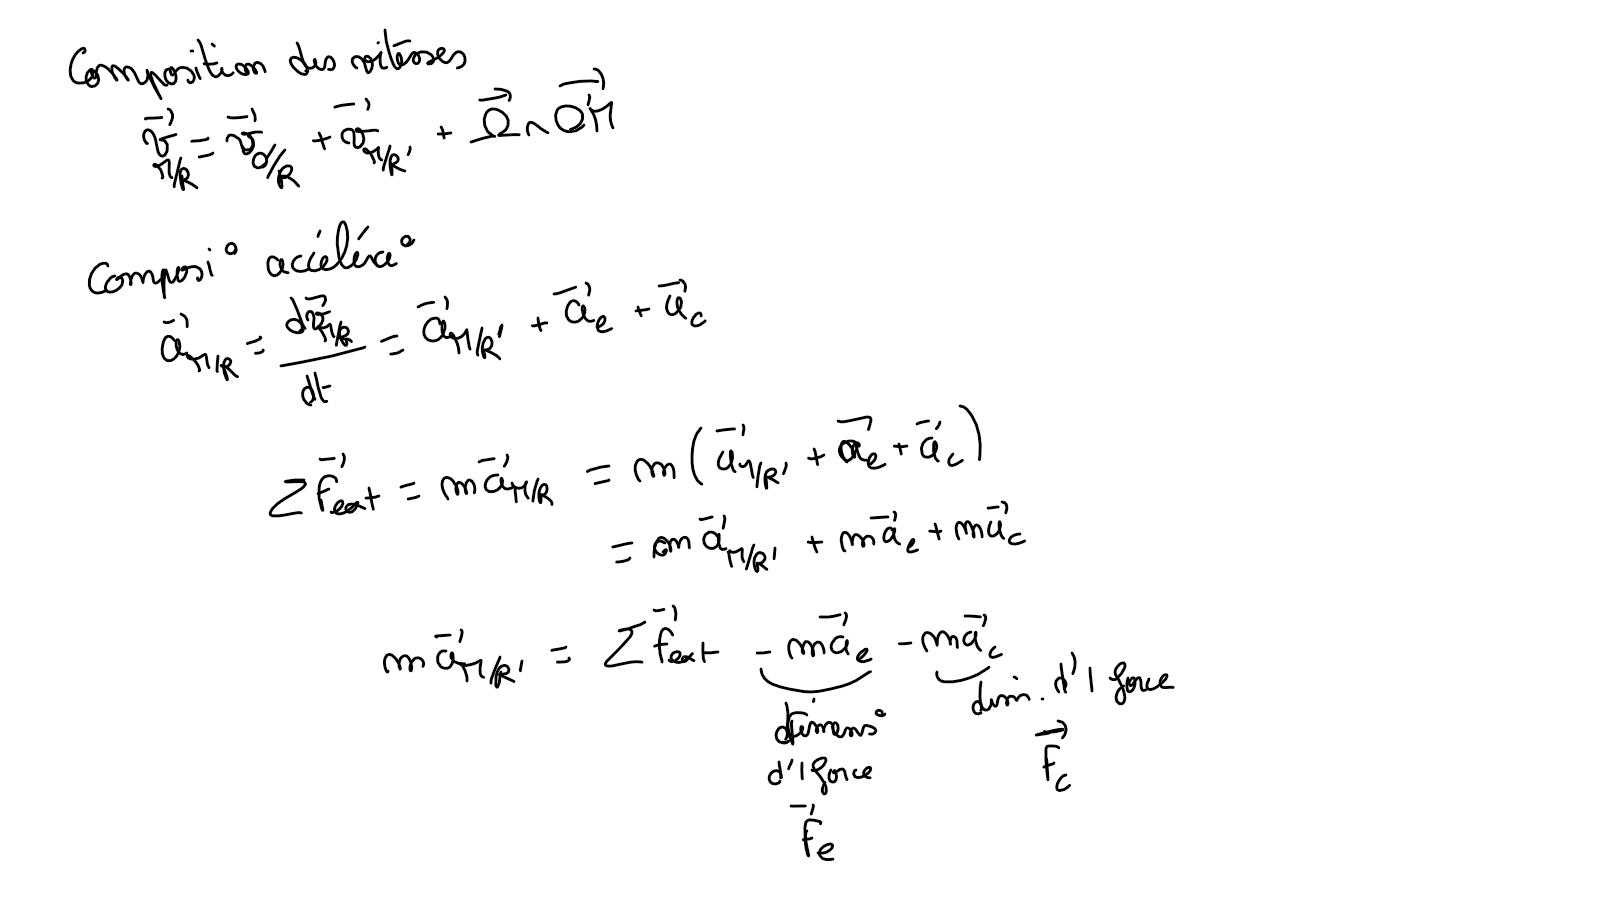 Composition des vitesses
$\vec{v}_{M/R} = \vec{v}_{O'/R} + \vec{v}_{M/R'} + \vec{\Omega} \wedge \overrightarrow{O'M}$
Composi° accéléra°
$\vec{a}_{M/R} = \frac{d\vec{v}_{M/R}}{dt} = \vec{a}_{M/R'} + \vec{a}_e + \vec{a}_c$
$\sum \vec{f}_{ext} = m\vec{a}_{M/R} = m(\vec{a}_{M/R'} + \vec{a}_e + \vec{a}_c)$
$= m\vec{a}_{M/R'} + m\vec{a}_e + m\vec{a}_c$
$m\vec{a}_{M/R'} = \sum \vec{f}_{ext} - m\vec{a}_e - m\vec{a}_c$
dimens°
d'1 force
$\vec{f}_e$
dim. d'1 force
$\vec{f}_c$